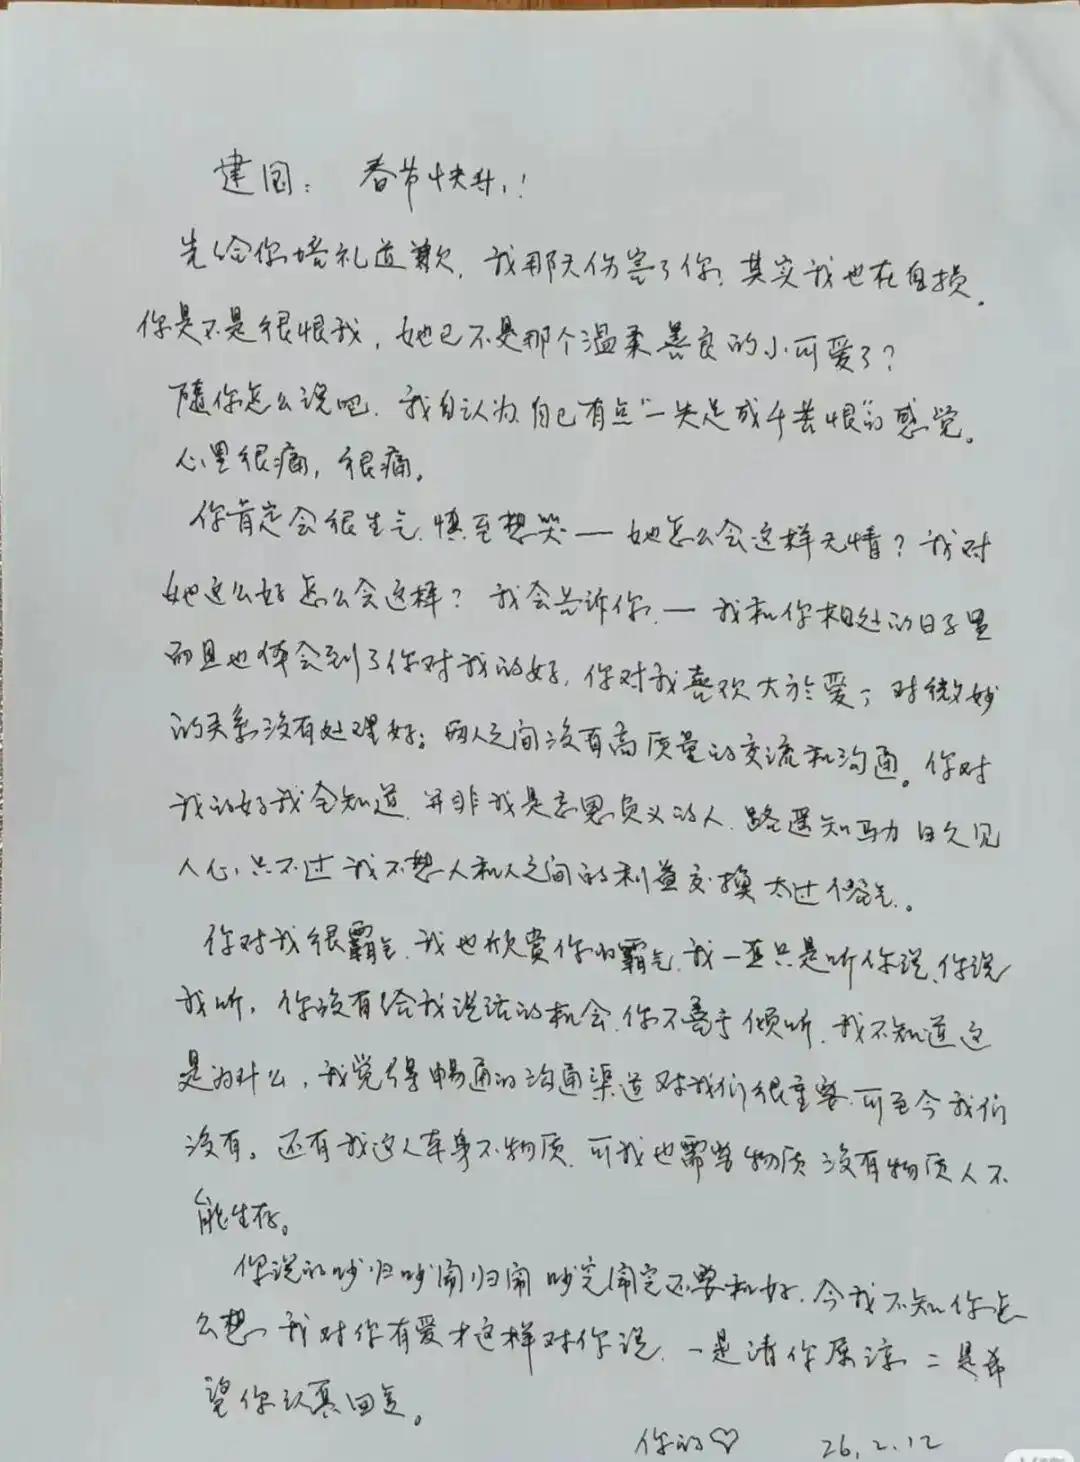 建国：春节快乐！
先给你培礼道歉，我那天伤害了你，其实我也在自损。
你是不是很恨我，她已不是那个温柔善良的小可爱了？
随你怎么说吧，我自认为自己有点“一失足成千苦恨”的感觉。
心里很痛，很痛。
你肯定会很生气，慎至想哭——她怎么会这样无情？我对
她这么好怎么会这样？我会告诉你，——我和你相处的日子里
而且也体会到了你对我的好，你对我喜欢大於爱，对微妙
的关系没有处理好；两人之间没有高质量的交流和沟通。你对
我的好我全知道，并非我是忘恩负义的人，路遥知马力日久见
人心，只不过我不想人和人之间的利益交换太过俗气。
你对我很霸气，我也欣赏你的霸气，我一直只是听你说、你说
我听，你没有给我说话的机会，你不善于倾听，我不知道这
是为什么，我觉得畅通的沟通渠道对我们很重要，可至今我们
没有。还有我这人本身不物质，可我也需要物质没有物质人不
能生存。
你说的吵归吵闹归闹吵完闹完还要和好，今我不知你怎
么想，我对你有爱才这样对你说，一是请你原谅，二是希
望你认真回复。
你的♡ 26.2.12